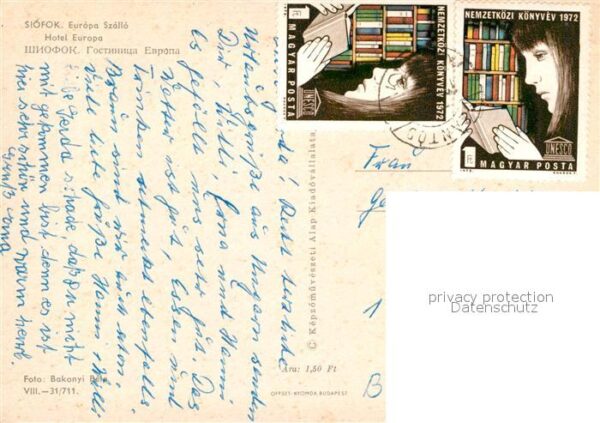 SIÓFOK. Európa Szálló
Hotel Europa
ШИОФОК. Гостиница Европа
Recht herzliche
Urlaubsgrüße aus Ungarn senden
Dir, Willi, Erna und Hanni
Es gefällt uns sehr gut. Das
Wetter ist gut, Essen und
Trinken schmeckt ebenfalls.
Braun sind wir auch schon.
Viele liebe Grüße Hanni, Willi
Gerda schade daß Du nicht
mit gekommen bist denn es ist
hier sehr schön und warm
Gruß Erna
Foto: Bakonyi Béla
VIII.—31/711.
© Képzőművészeti Alap Kiadóvállalata,
Ára: 1,50 Ft
OFFSET-NYOMDA BUDAPEST
NEMZETKÖZI KÖNYVÉV 1972
UNESCO
1 Ft
MAGYAR POSTA
NEMZETKÖZI KÖNYVÉV 1972
UNESCO
1 Ft
MAGYAR POSTA
Frau
Ge
1
B
privacy protection
Datenschutz